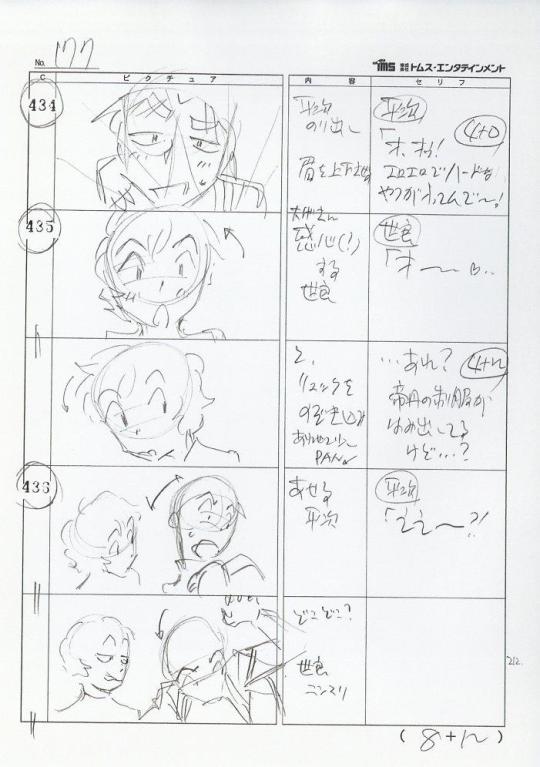 No. 177
TMS 株式会社 トムス・エンタテインメント
C ピクチュア 内容 セリフ
434
平次
のり出し
眉を上下させ
平次
4+0
「オ、オゥ!
エロエロでハードな
やつが入ってんで〜!
435
大げさに
感心(?)
する
世良
世良
「オ〜〜
と、
リュックを
のぞき込み
PAN
…あれ?
4+12
帝丹の制服が
はみ出してる
けど…?
436
あせる
平次
平次
「ええ〜?!
どこどこ?
世良
ニンマリ
212.
(8+12)